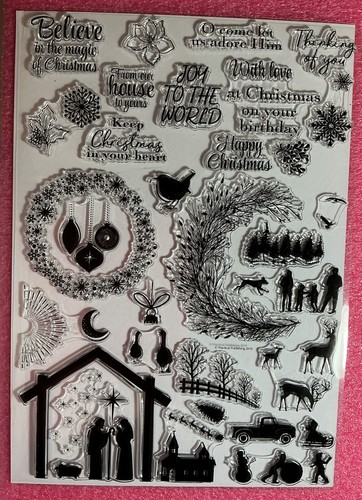 Believe
in the magic
of Christmas
O come let
us adore Him
Thinking
of you
From our
house
to yours
JOY
TO THE
WORLD
With love
at Christmas
on your
birthday
Keep
Christmas
in your heart
Happy
Christmas